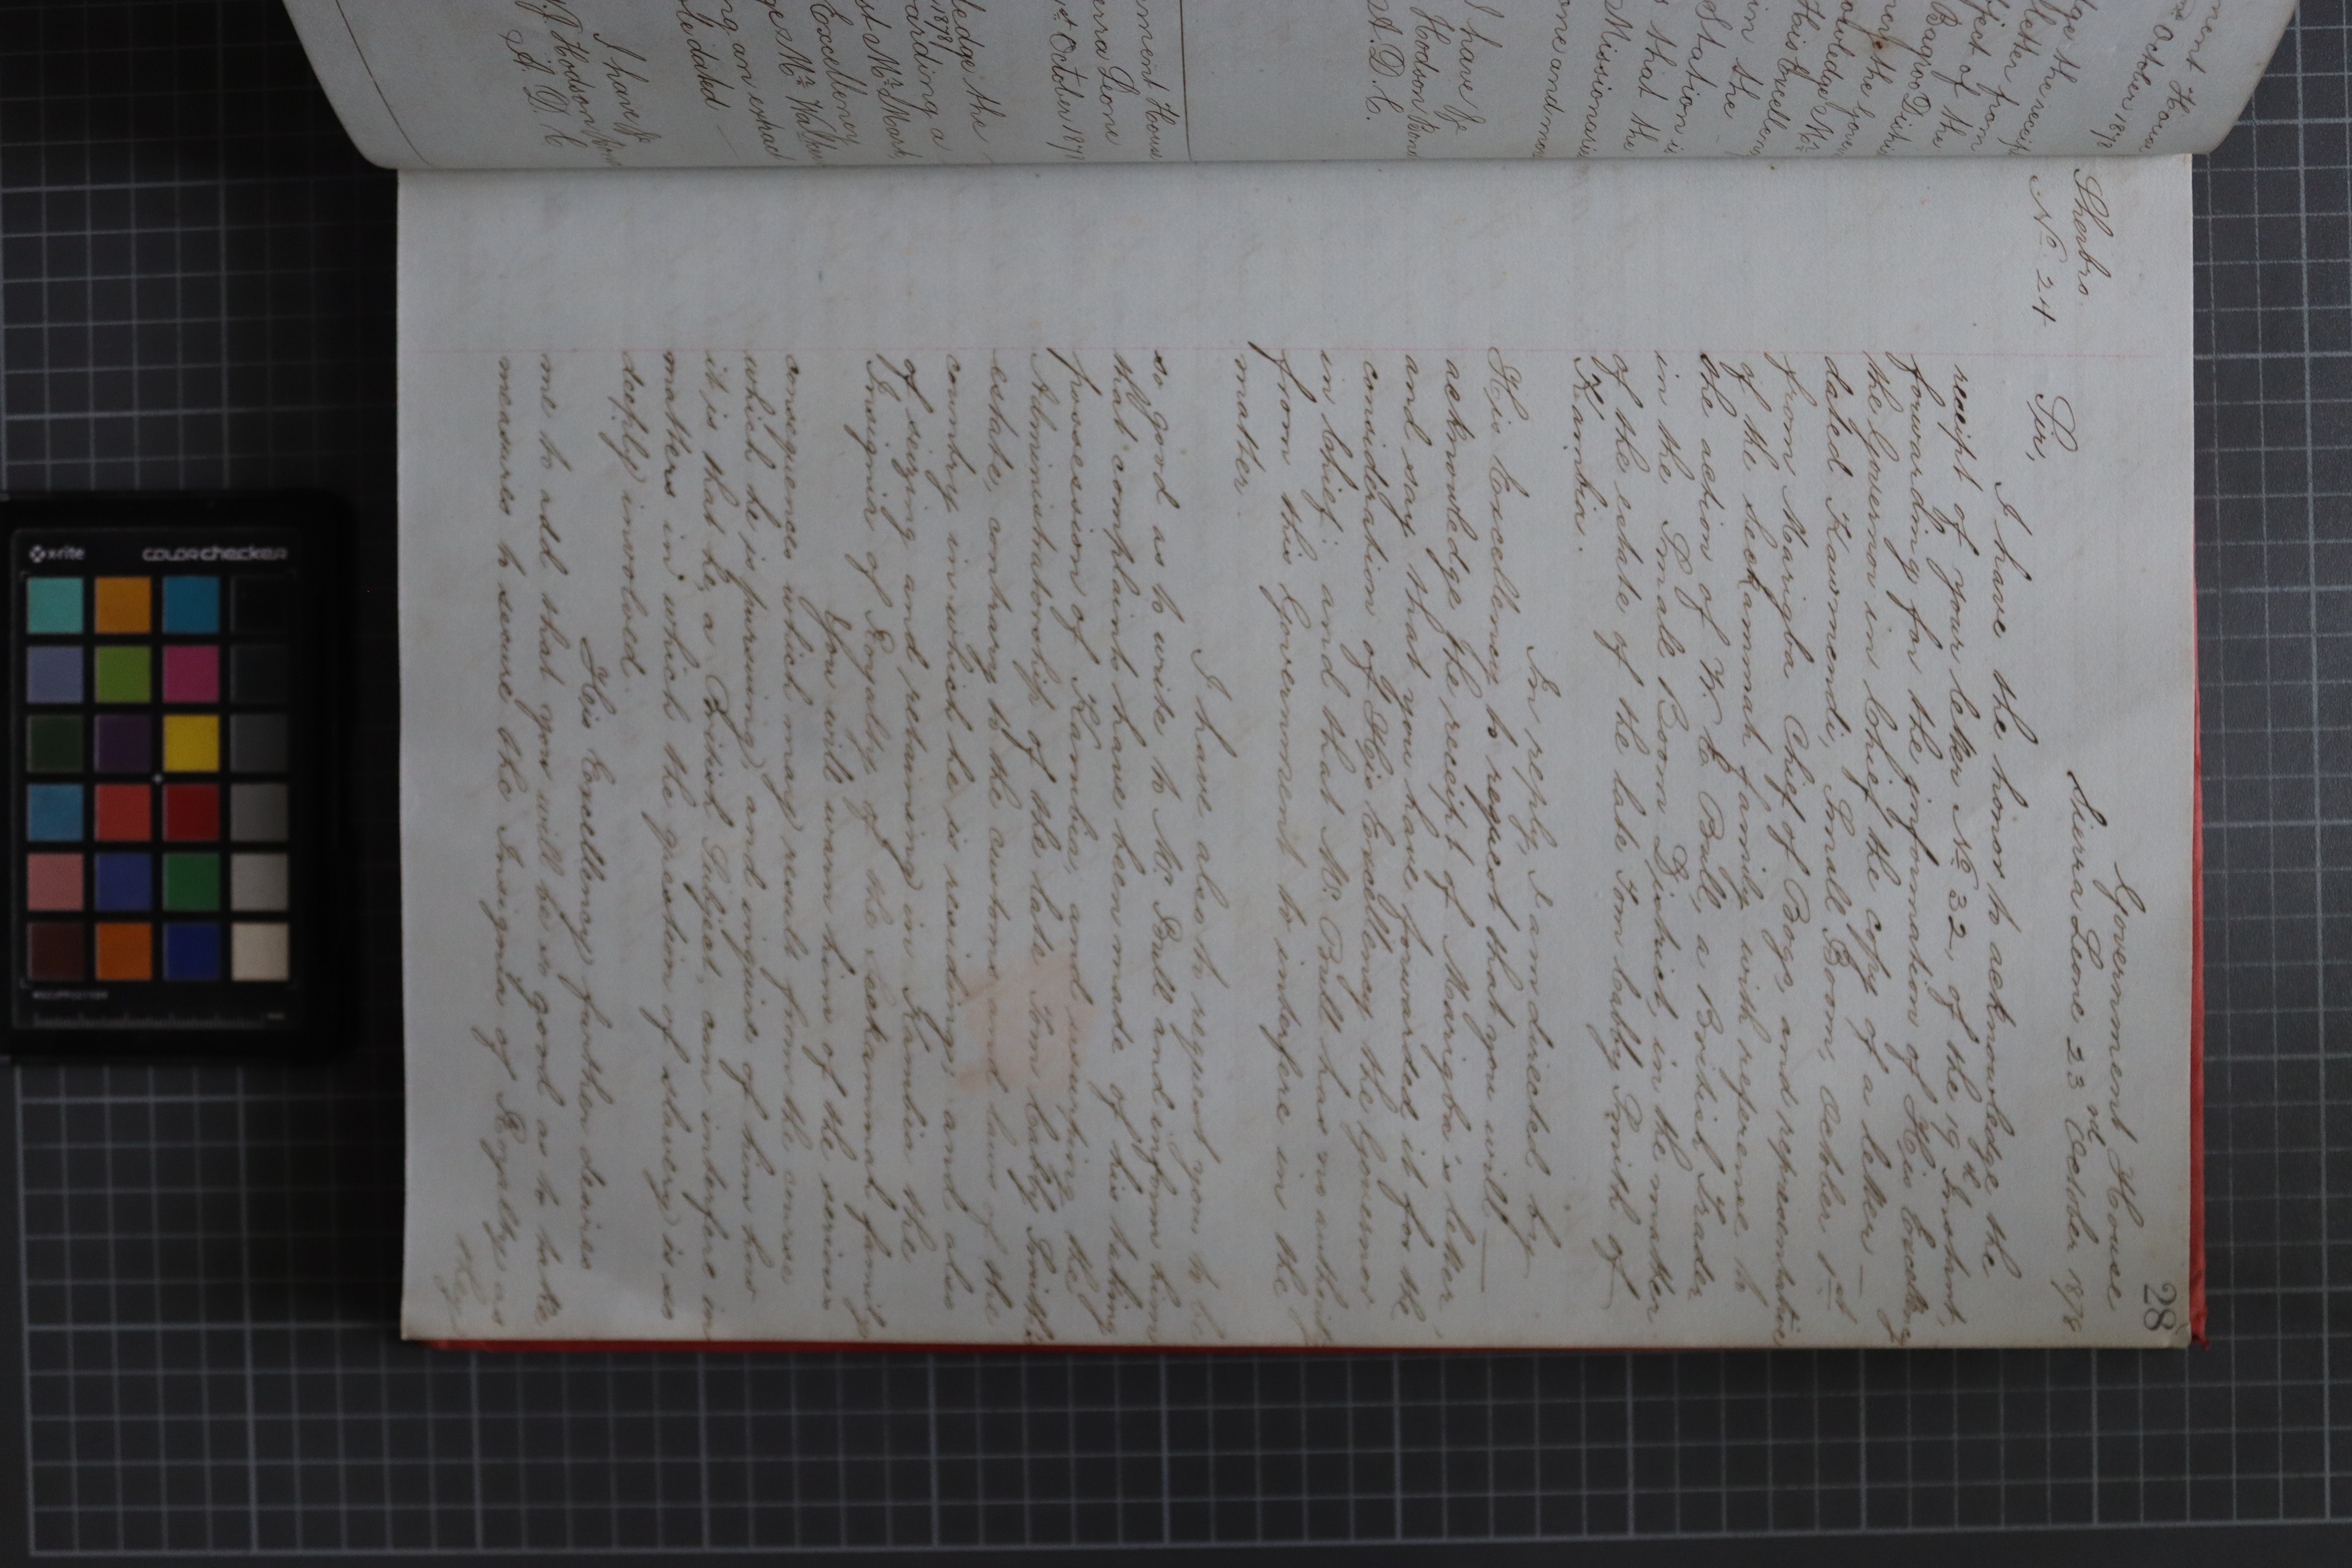 28
Government House
Sierra Leone 23rd October 1878
Sherbro
No. 24
Sir,
I have the honor to acknowledge the
receipt of your letter No. 32, of the 19th Instant,
forwarding for the information of His Excellency
the Governor in Chief the copy of a letter —
dated Kawmendi, Small Boom, October 1st
from Marigba Chief of Bogs, and representative
of the Seckammah family with reference to
the action of Mr. E Bull, a British Trader
in the Small Boom District, in the matter
of the estate of the late Tom Cabby Smith of
Kambia.
In reply, I am directed by
His Excellency to request that you will —
acknowledge the receipt of Marigba's letter
and say that you have forwarded it for the
consideration of His Excellency the Governor
in Chief; and that Mr. Bull has no authority
from this Government to interfere in the
matter
I have also to request you to be
so good as to write to Mr. Bull and inform him
that complaints have been made of his taking
possession of Kambia, and usurping the
Administratorship of the late Tom Cabby Smith's
estate, contrary to the customs and laws of the
country in which he is residing, and also
of seizing and retaining in Kambia the
Insignia of Royalty of the Seckammah family
You will warn him of the serious
consequences which may result from the course
which he is pursuing, and inquire of him how
it is that he, a British Subject, can interfere in
matters in which the question of slavery is so
deeply involved.
His Excellency further desires
me to add that you will be so good as to take
measures to secure the Insignia of Royalty as
they
ment House
October 1878
dge the receipt
letter from
ject of the
Bagroo Distri
His Excellen
in the
Station is
that the
Missionari
one and mor
I have &c
Hodson
A. D. C.
ment House
erra Leone
October 187
ledge the
1878
arding a
st Mr. Mark
Excellency
ge Mr. Wa
ng an extrac
dated
I have &c
Hodson
A. D. C